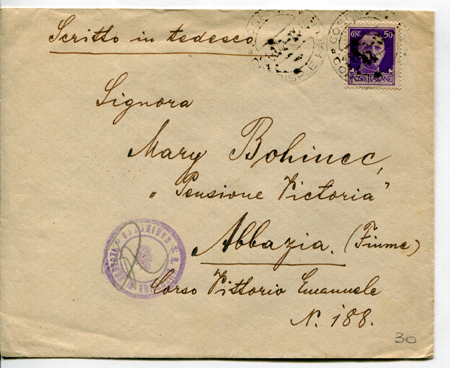 Scritto in tedesco
CENT 50
POSTE ITALIANE
Signora
Mary Bohinec,
„Pensione Victoria"
Abbazia. (Fiume)
Corso Vittorio Emanuele
N. 188.
30